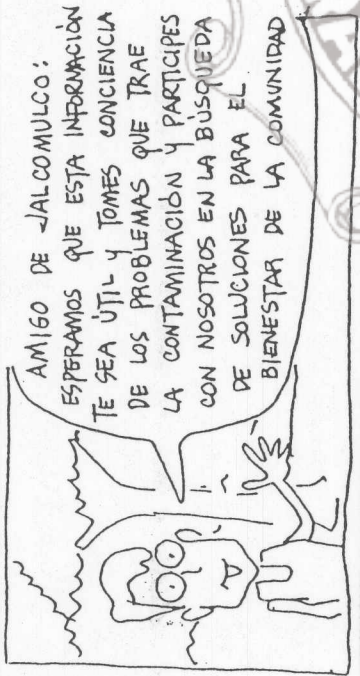 AMIGO DE JALCOMULCO:
ESPERAMOS QUE ESTA INFORMACIÓN
TE SEA ÚTIL Y TOMES CONCIENCIA
DE LOS PROBLEMAS QUE TRAE
LA CONTAMINACIÓN Y PARTICIPES
CON NOSOTROS EN LA BÚSQUEDA
DE SOLUCIONES PARA EL
BIENESTAR DE LA COMUNIDAD